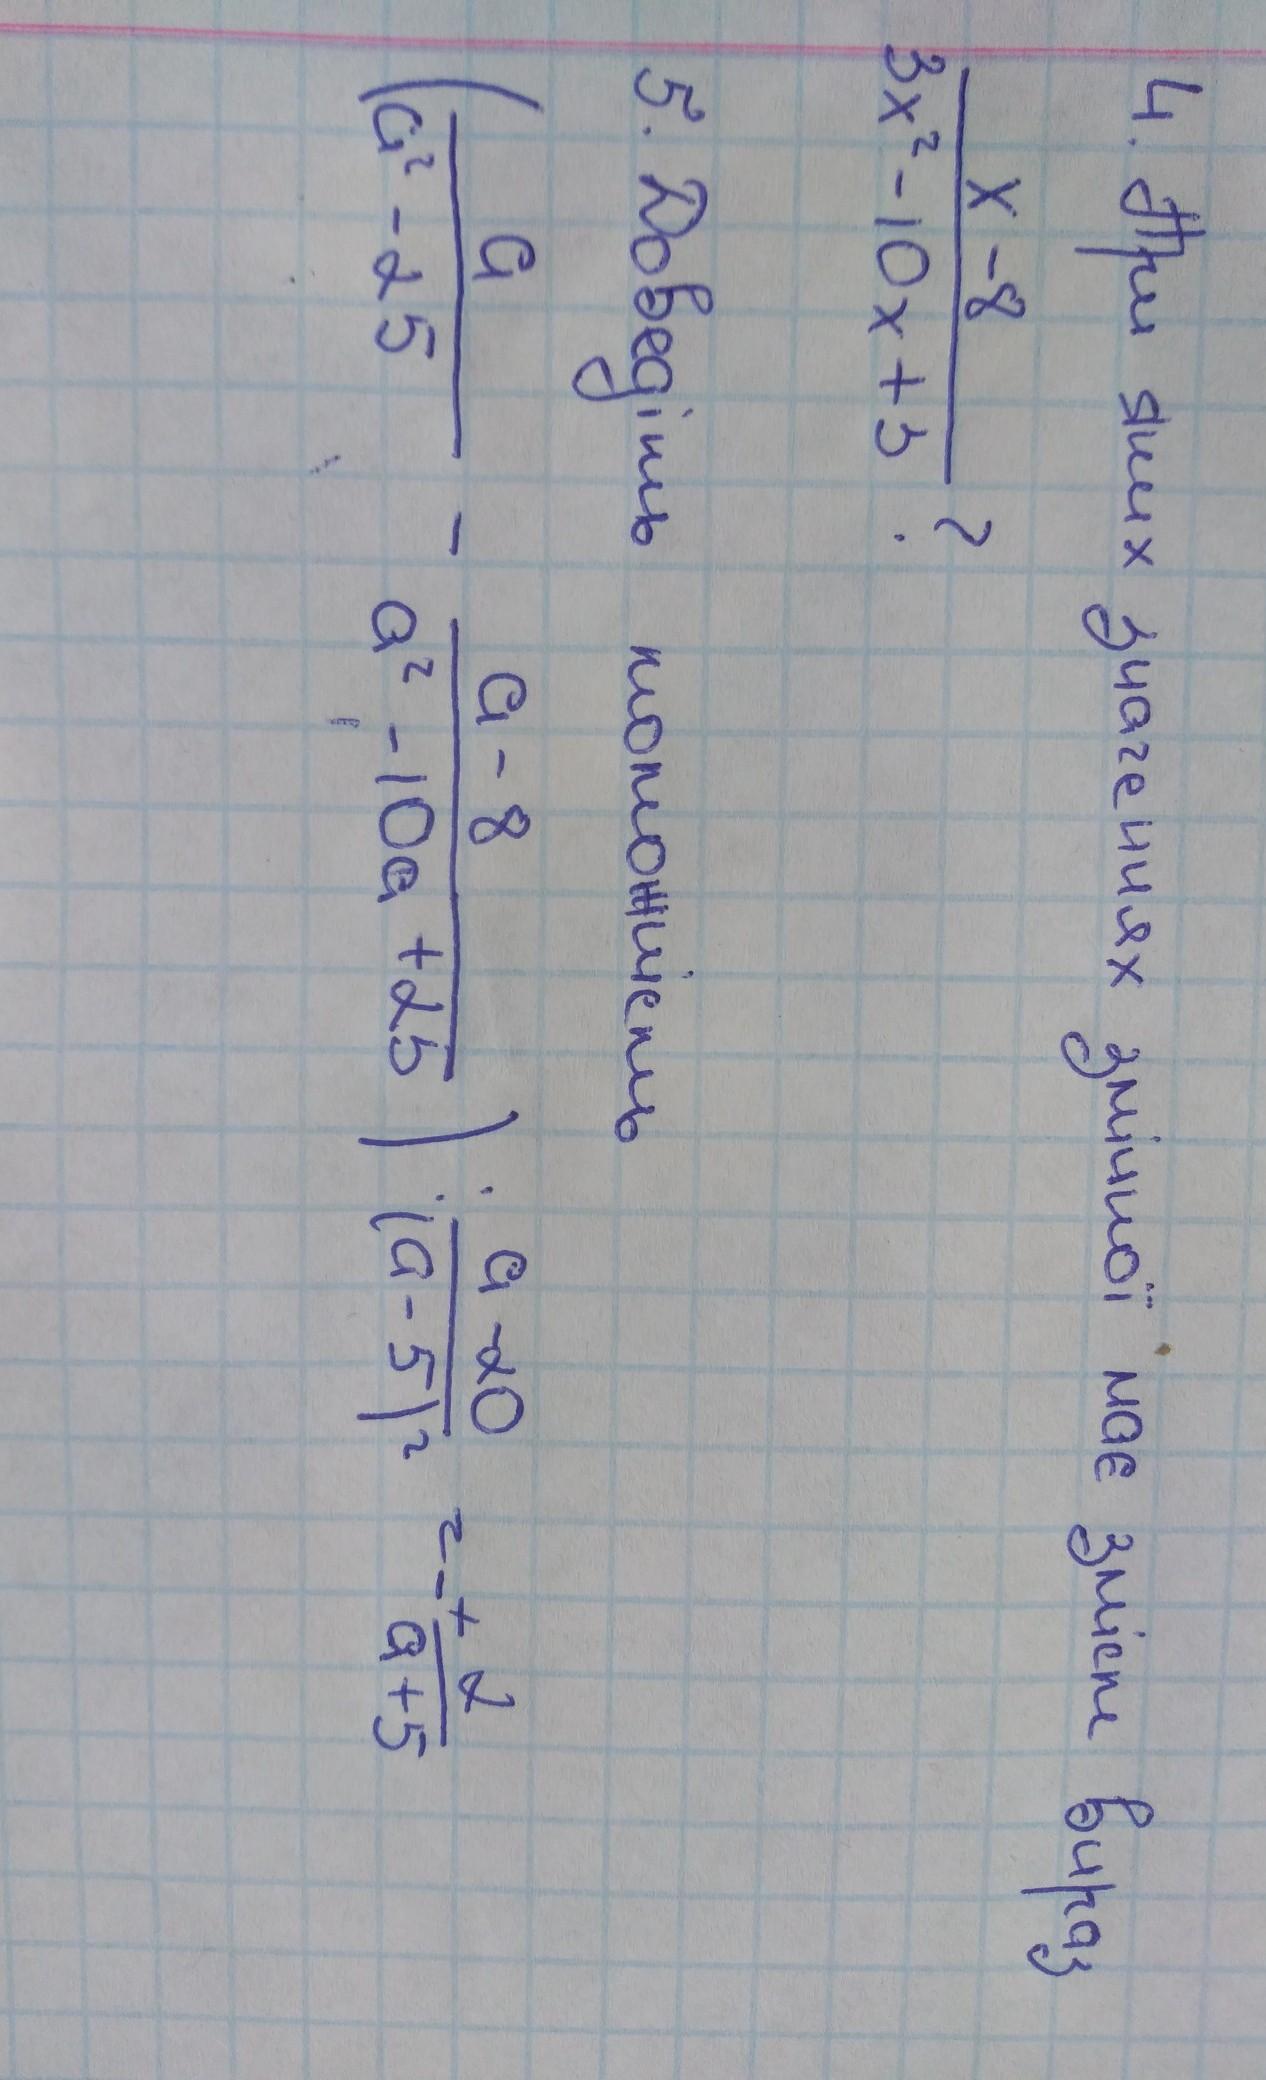 4. При яких значеннях змінної має зміст вираз
x - 8
3x² - 10x + 3 ?
5. Доведіть тотожність
( a / a² - 25 - a - 8 / a² - 10a + 25 ) : a - 20 / (a - 5)² = - 2 / a + 5